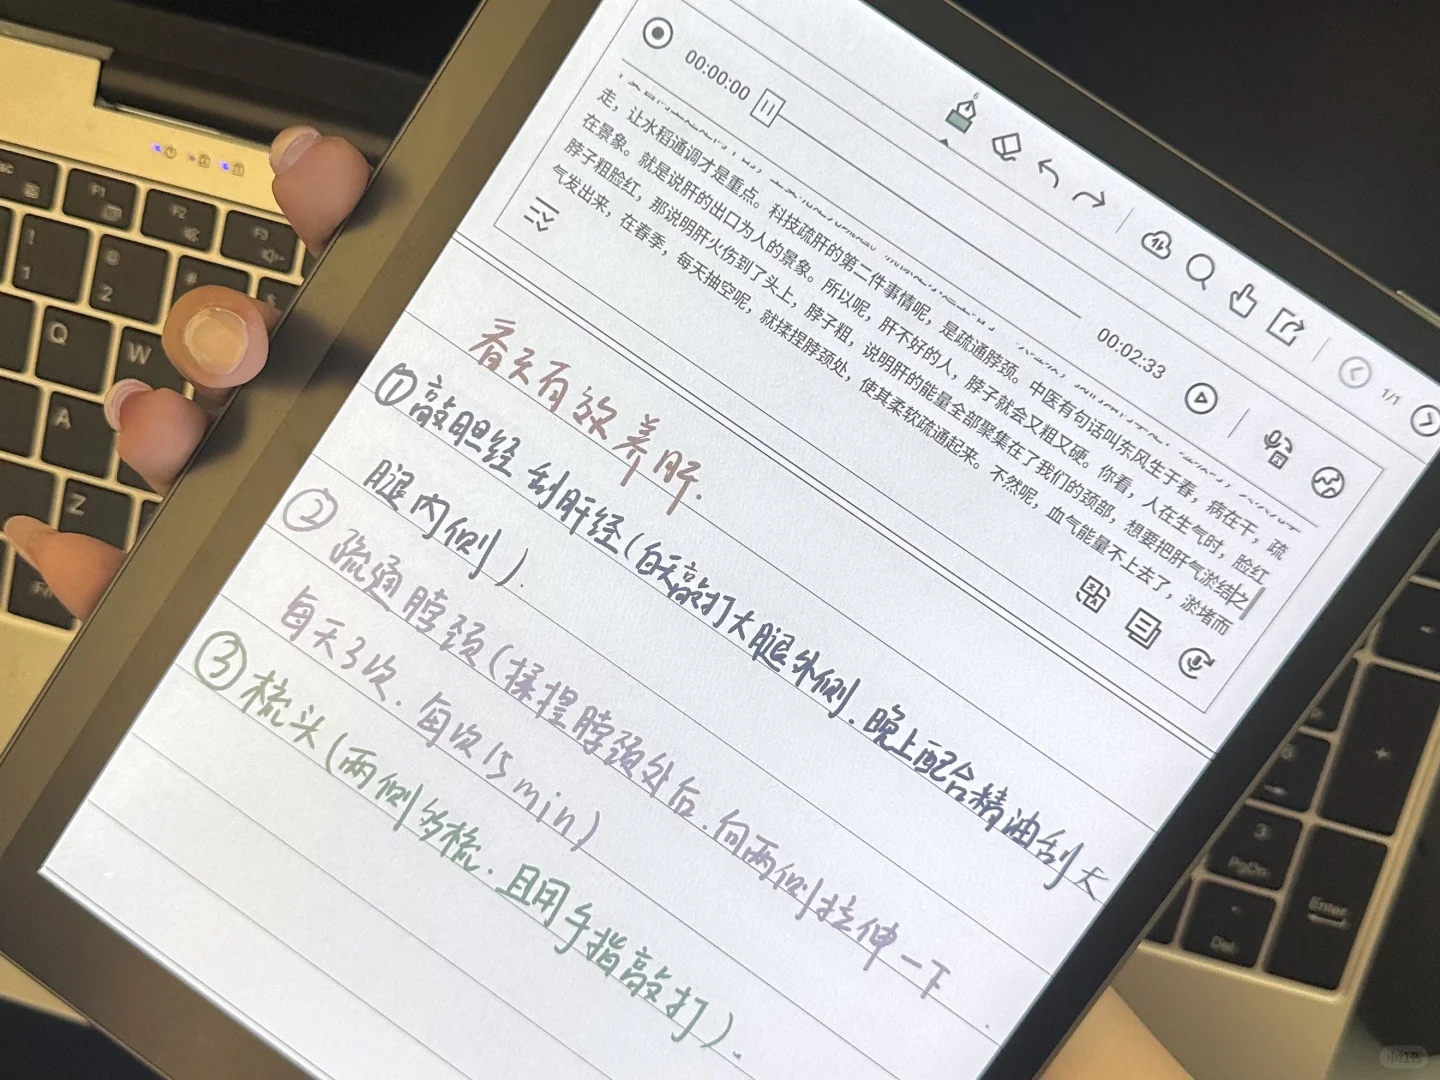 00:00:00
00:02:33
1/1
走，让水稻通调才是重点。科技疏肝的第二件事情呢，是疏通脖颈。中医有句话叫东风生于春，病在干，疏
在景象。就是说肝的出口为人的景象。所以呢，肝不好的人，脖子就会又粗又硬。你看，人在生气时，脸红
脖子粗脸红，那说明肝火伤到了头上，脖子粗，说明肝的能量全部聚集在了我们的颈部，想要把肝气淤结之
气发出来，在春季，每天抽空呢，就揉捏脖颈处，使其柔软疏通起来。不然呢，血气能量不上去了，淤堵而
春天有效养肝.
①敲胆经 刮肝经(白天敲打大腿外侧.晚上配合精油刮大
腿内侧).
②疏通脖颈(揉捏脖颈处后.向两侧拉伸一下
每天3次.每次15min)
③梳头(两侧多梳.且用手指敲打).
F1
F2
F3
!
1
@
2
#
Q
W
A
Z
3
PgDn
Enter
Del
+
小红书